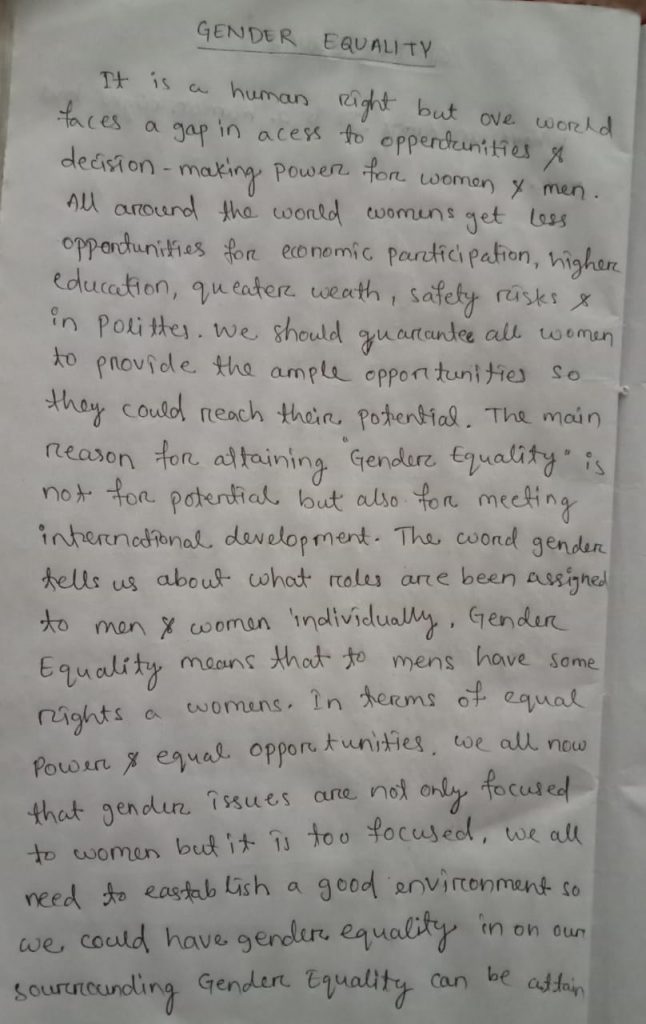 GENDER EQUALITY
It is a human right but ove world
faces a gap in acess to oppertunities &
decision - making power for women & men.
All around the world womens get less
opportunities for economic participation, higher
education, queater weath, safety risks &
in polittes. We should guarantee all women
to provide the ample opportunities so
they could reach their potential. The main
reason for attaining "Gender Equality" is
not for potential but also for meeting
international development. The word gender
tells us about what roles are been assigned
to men & women individually, Gender
Equality means that to mens have some
rights a womens. In terms of equal
power & equal opportunities. we all now
that gender issues are not only focused
to women but it is too focused, we all
need to eastablish a good environment so
we could have gender equality in on our
sourrounding Gender Equality can be attain